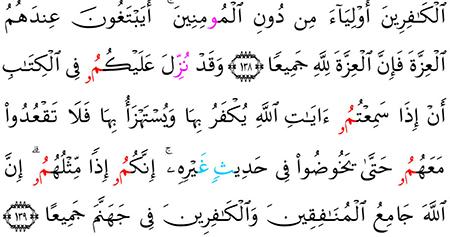 ٱلْكَٰفِرِينَ أَوْلِيَآءَ مِن دُونِ ٱلْمُومِنِينَۚ أَيَبْتَغُونَ عِندَهُمُ
ٱلْعِزَّةَ فَإِنَّ ٱلْعِزَّةَ لِلَّهِ جَمِيعًا ﴿١٣٨﴾ وَقَدْ نُزِّلَ عَلَيْكُمُۥ فِى ٱلْكِتَٰبِ
أَنْ إِذَا سَمِعْتُمُۥٓ ءَايَٰتِ ٱللَّهِ يُكْفَرُ بِهَا وَيُسْتَهْزَأُ بِهَا فَلَا تَقْعُدُوا۟
مَعَهُمُۥ حَتَّىٰ يَخُوضُوا۟ فِى حَدِيثٍ غَيْرِهِۦٓۚ إِنَّكُمُۥٓ إِذًا مِّثْلُهُمُۥٓۗ إِنَّ
ٱللَّهَ جَامِعُ ٱلْمُنَٰفِقِينَ وَٱلْكَٰفِرِينَ فِى جَهَنَّمَ جَمِيعًا ﴿١٣٩﴾